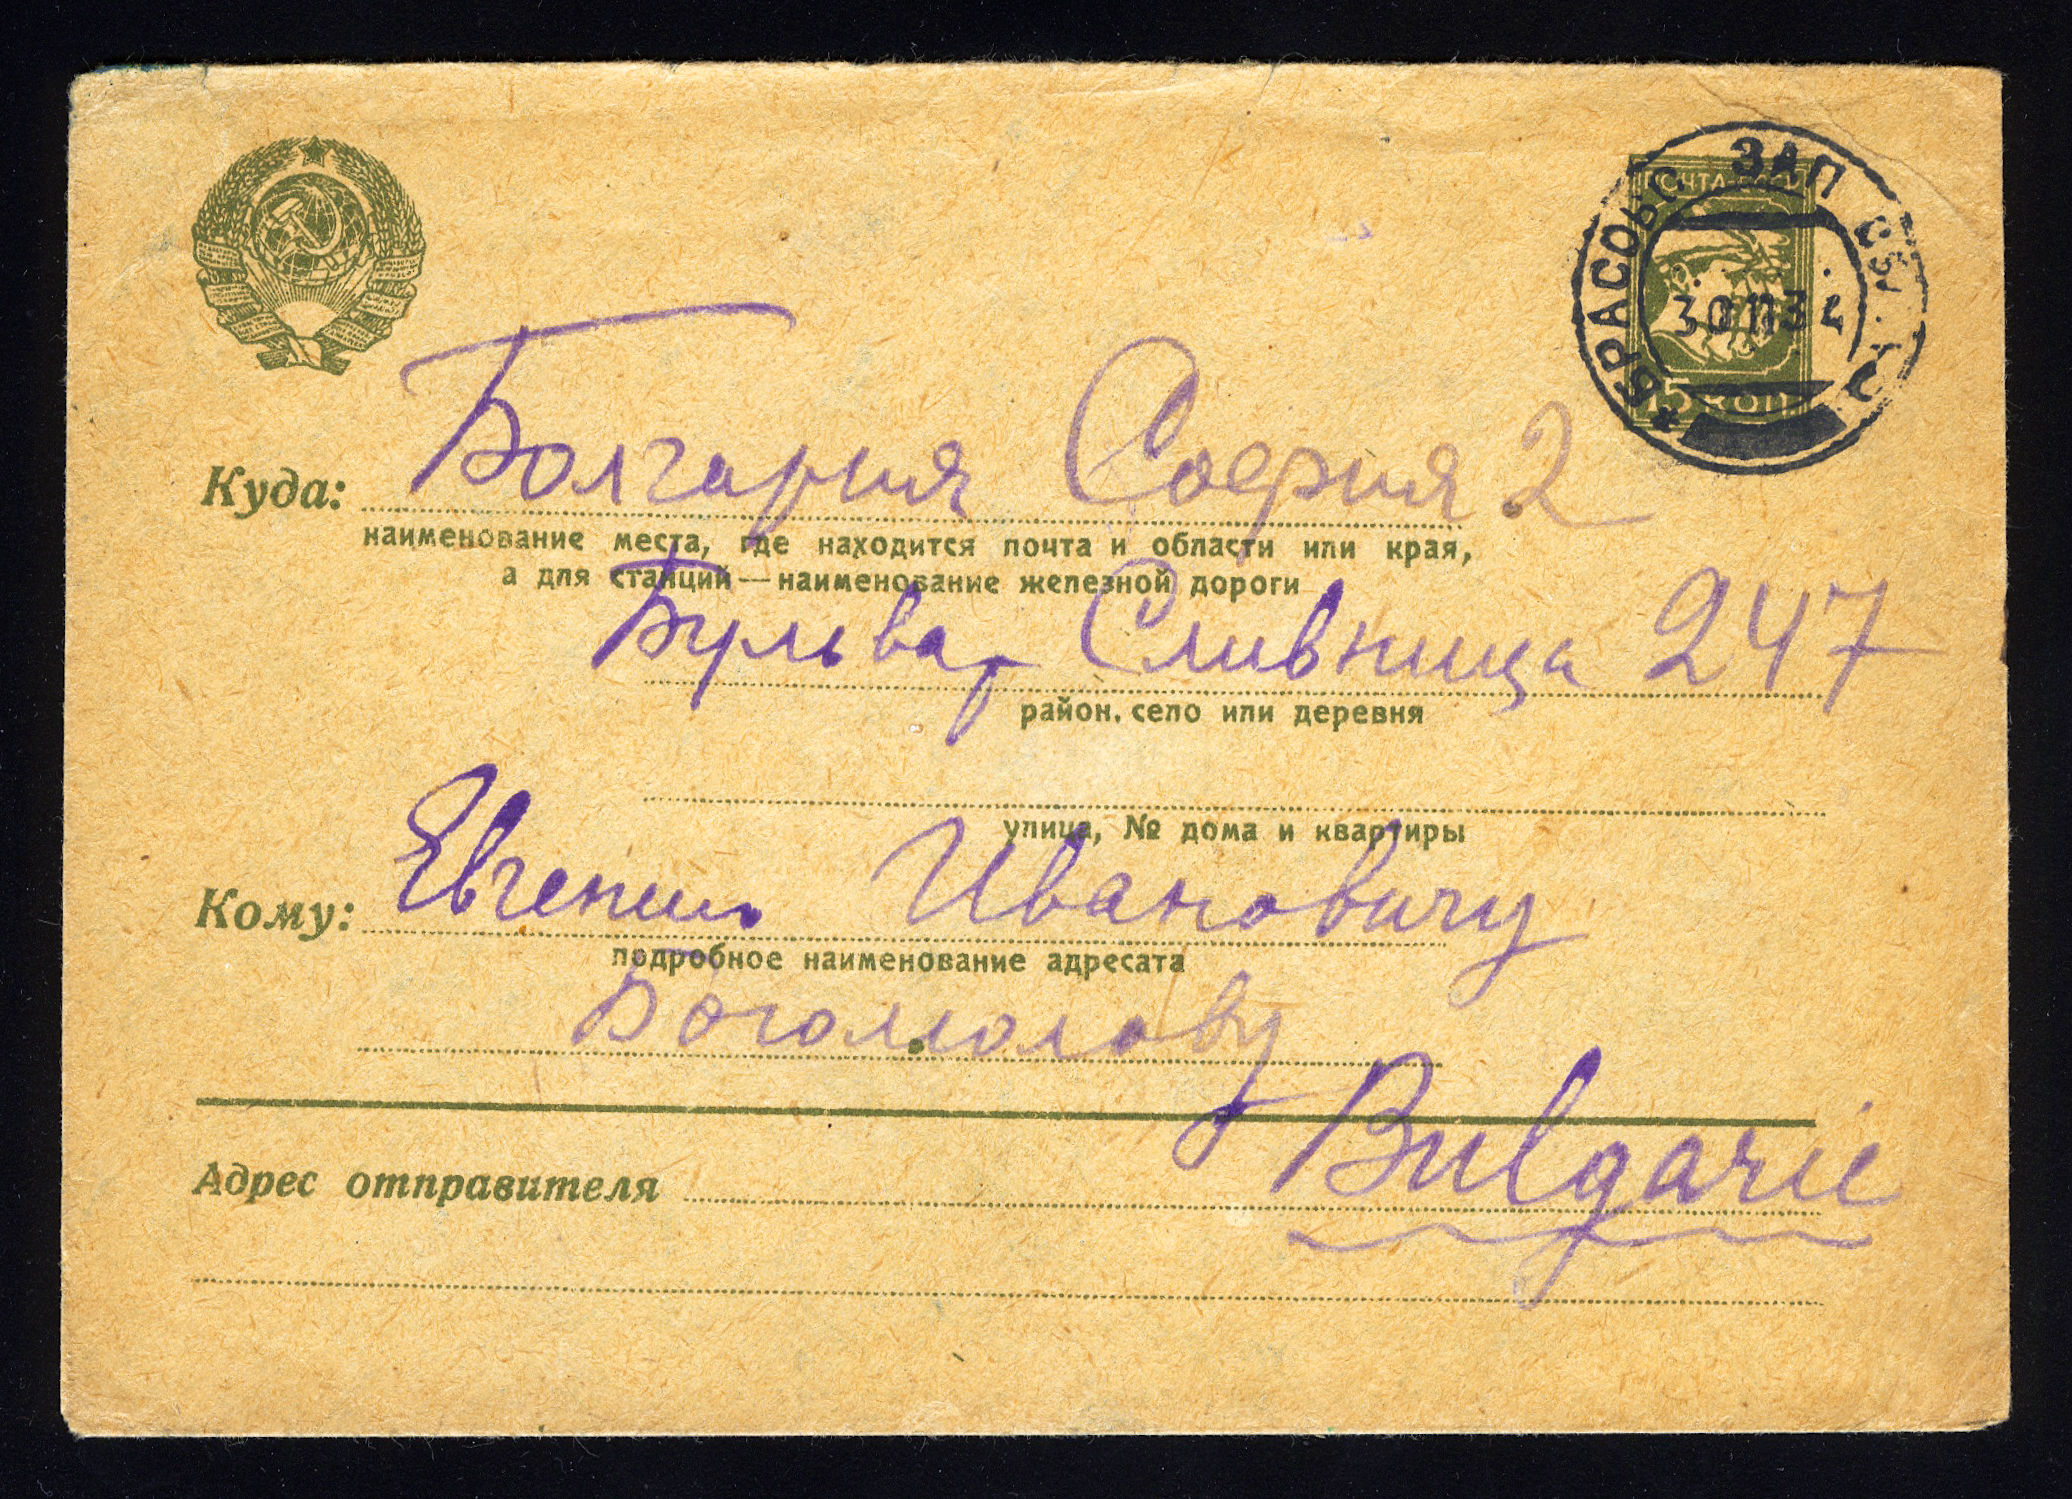 ПОЧТА СССР
15 коп.
БРАСОВО ЗАП
30 11 34
Болгария София 2
Куда:
наименование места, где находится почта и области или края,
а для станций — наименование железной дороги
Бульвар Сливница 247
район, село или деревня
улица, № дома и квартиры
Кому: Евгению Ивановичу
подробное наименование адресата
Богомолову
Bulgarie
Адрес отправителя